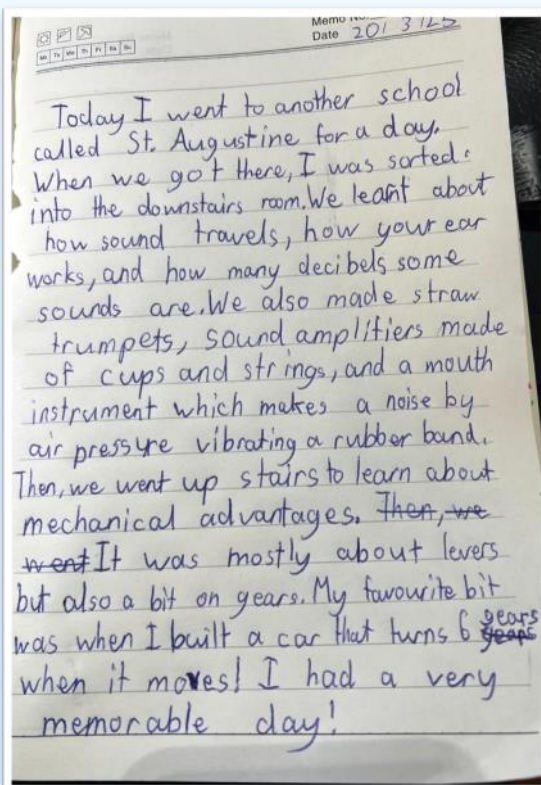 Memo No.
Mo Tu We Th Fr Sa Su
Date 201 3/25
Today I went to another school
called St. Augustine for a day.
When we got there, I was sorted
into the downstairs room. We learnt about
how sound travels, how your ear
works, and how many decibels some
sounds are. We also made straw
trumpets, sound amplifiers made
of cups and strings, and a mouth
instrument which makes a noise by
air pressure vibrating a rubber band.
Then, we went up stairs to learn about
mechanical advantages. Then, we
went It was mostly about levers
but also a bit on gears. My favourite bit
was when I built a car that turns 6 gears
when it moves! I had a very
memorable day!